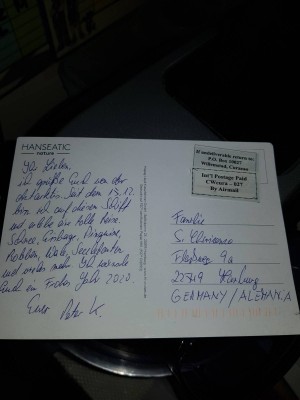 HANSEATIC
nature
Ihr Lieben,
ich grüße Euch von der
Antarktis. Seit dem 13.12.
bin ich auf diesem Schiff
und erlebe eine tolle Reise.
Schnee, Eisberge, Pinguine,
Robben, Wale, Seeelefanten
und vieles mehr. Ich wünsche
Euch ein Frohes Jahr 2020.
Euer Peter K.
If undeliverable return to:
P.O. Box 10027
Willemstad, Curacao
Int'l Postage Paid
CWcura - 027
By Airmail
Familie
S.
9a
22549 Hamburg
GERMANY / ALEMANIA